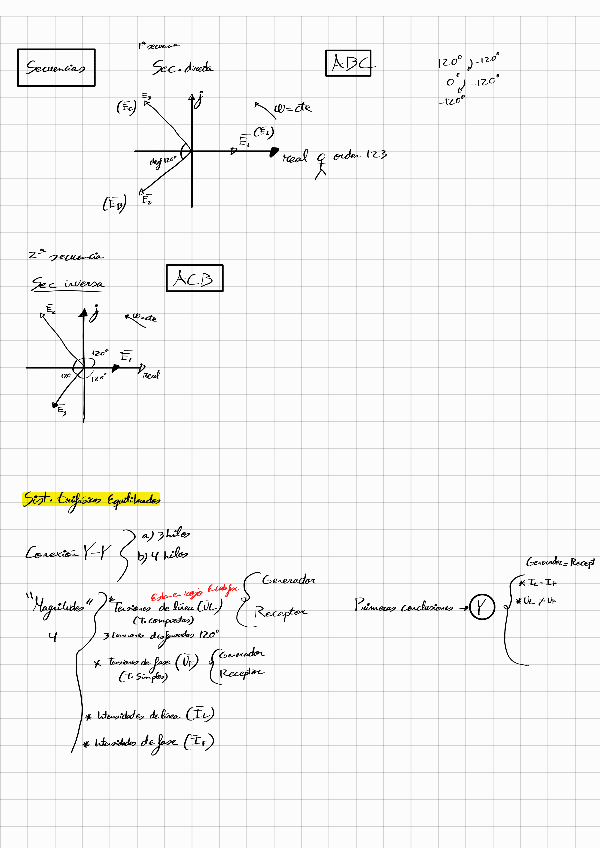 Secuencias
1ª secuencia
Sec. directa
ABC
120° -120°
0° -120°
-120°
j
E₃
(E₁)
E₁
w=cte
real
orden 123
E₂
2ª secuencia
Sec inversa
ACB
E₂
j
w=cte
120°
E₁
120°
real
E₃
Sist. trifásicos Equilibrados
Conexión Y-Y
a) 3 hilos
b) 4 hilos
"Magnitudes"
4
* Tensiones de línea (UL)
(T. compuestas)
3 tensiones desfasadas 120°
Generador
Receptor
* Tensiones de fase (Uf)
(T. Simples)
Generador
Receptor
* Intensidades de línea (IL)
* Intensidades de fase (IF)
Primeras conclusiones → Y
Generador = Recept
* IL = If
* UL ≠ UF